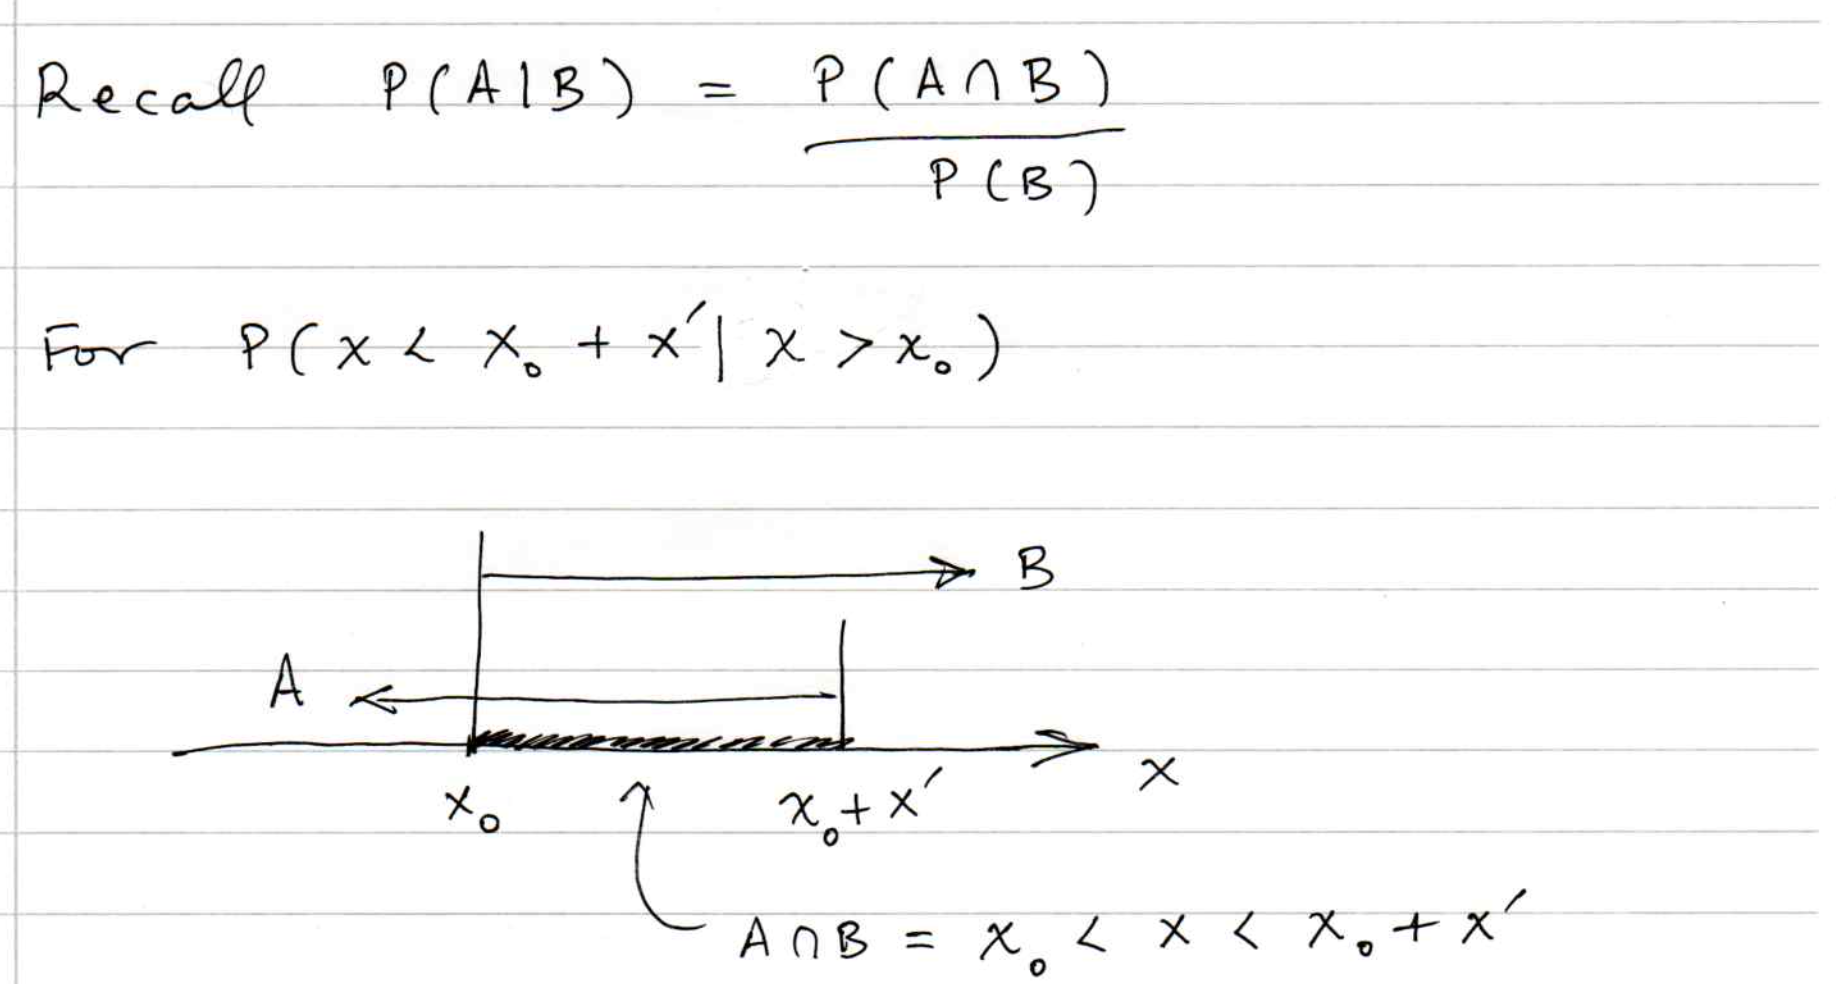 Recall P(A|B) = P(A∩B)
P(B)
For P(x < x₀ + x′ | x > x₀)
B
A
x₀ x₀ + x′ x
A∩B = x₀ < x < x₀ + x′